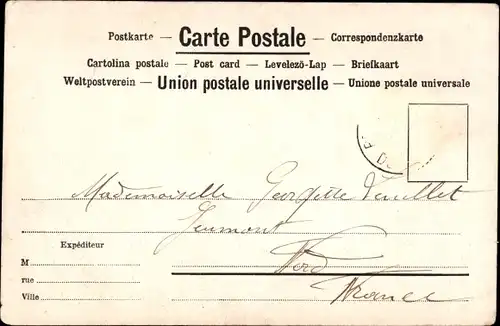 Postkarte — Carte Postale — Correspondenzkarte
Cartolina postale — Post card — Levelezö-Lap — Briefkaart
Weltpostverein — Union postale universelle — Unione postale universale
Mademoiselle Georgette
Jeumont
Expéditeur
Nord
M
rue
France
Ville